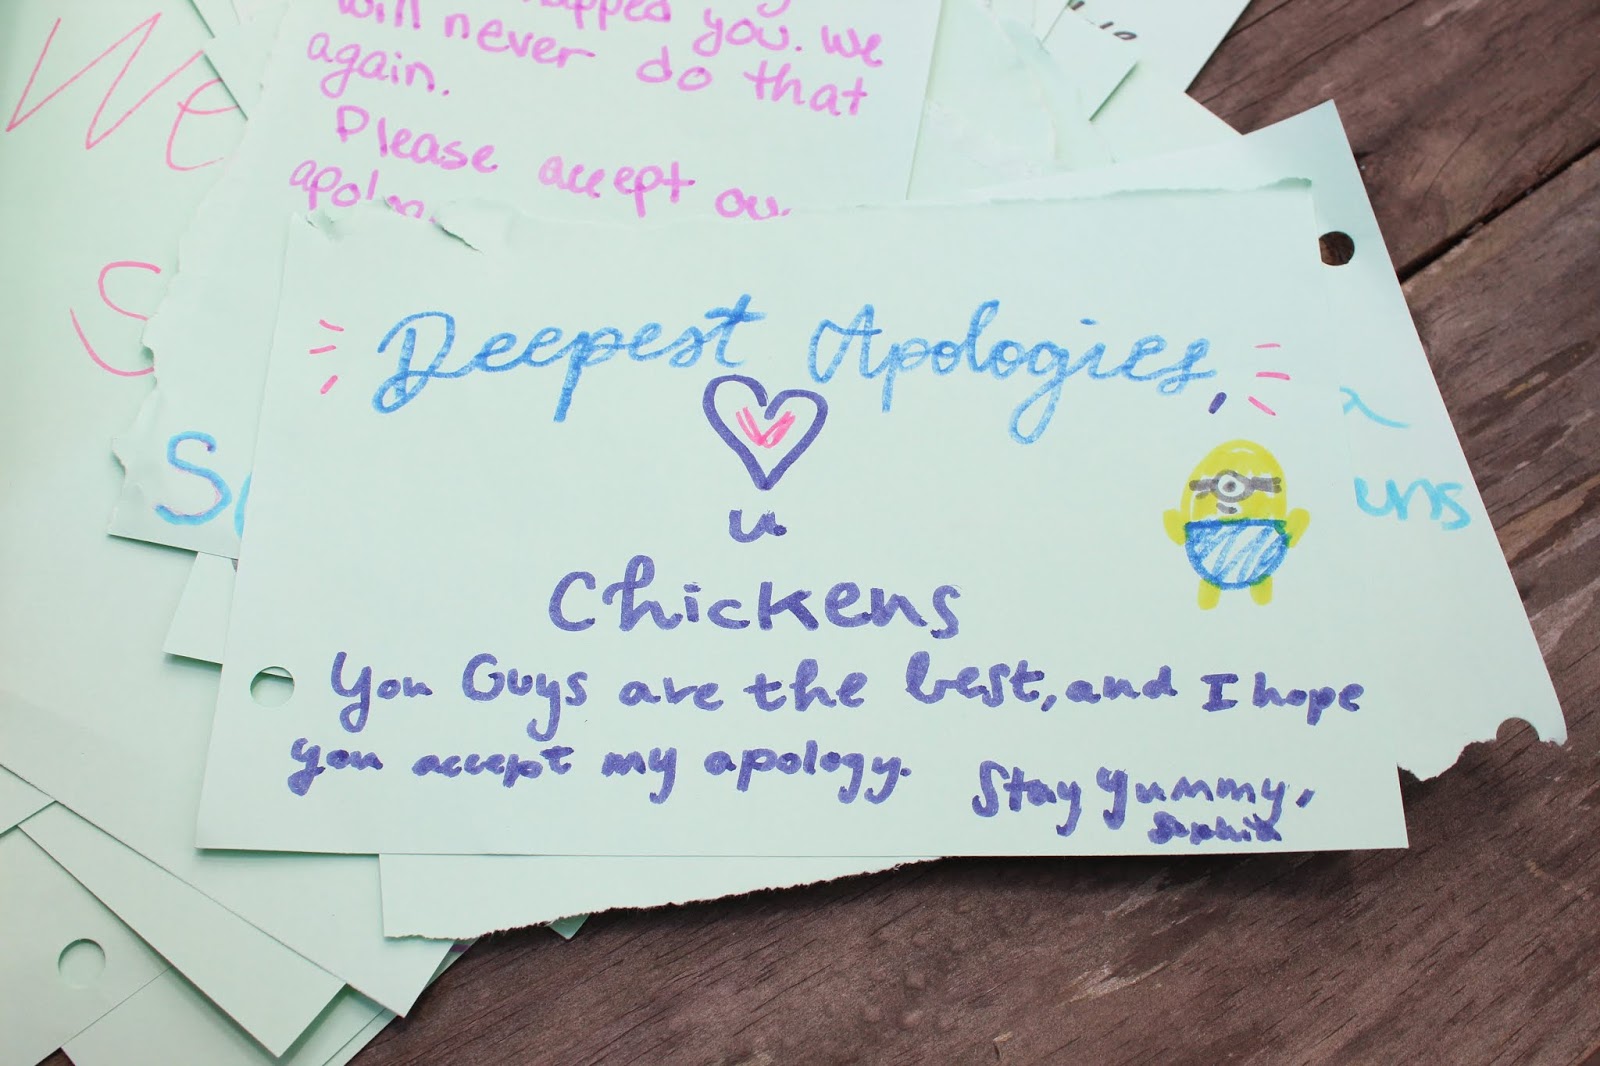 you. We
will never do that
again.
Please accept
We
Deepest Apologies,
u.
Chickens
You Guys are the best, and I hope
you accept my apology.
Stay Yummy,
Sophia
uns